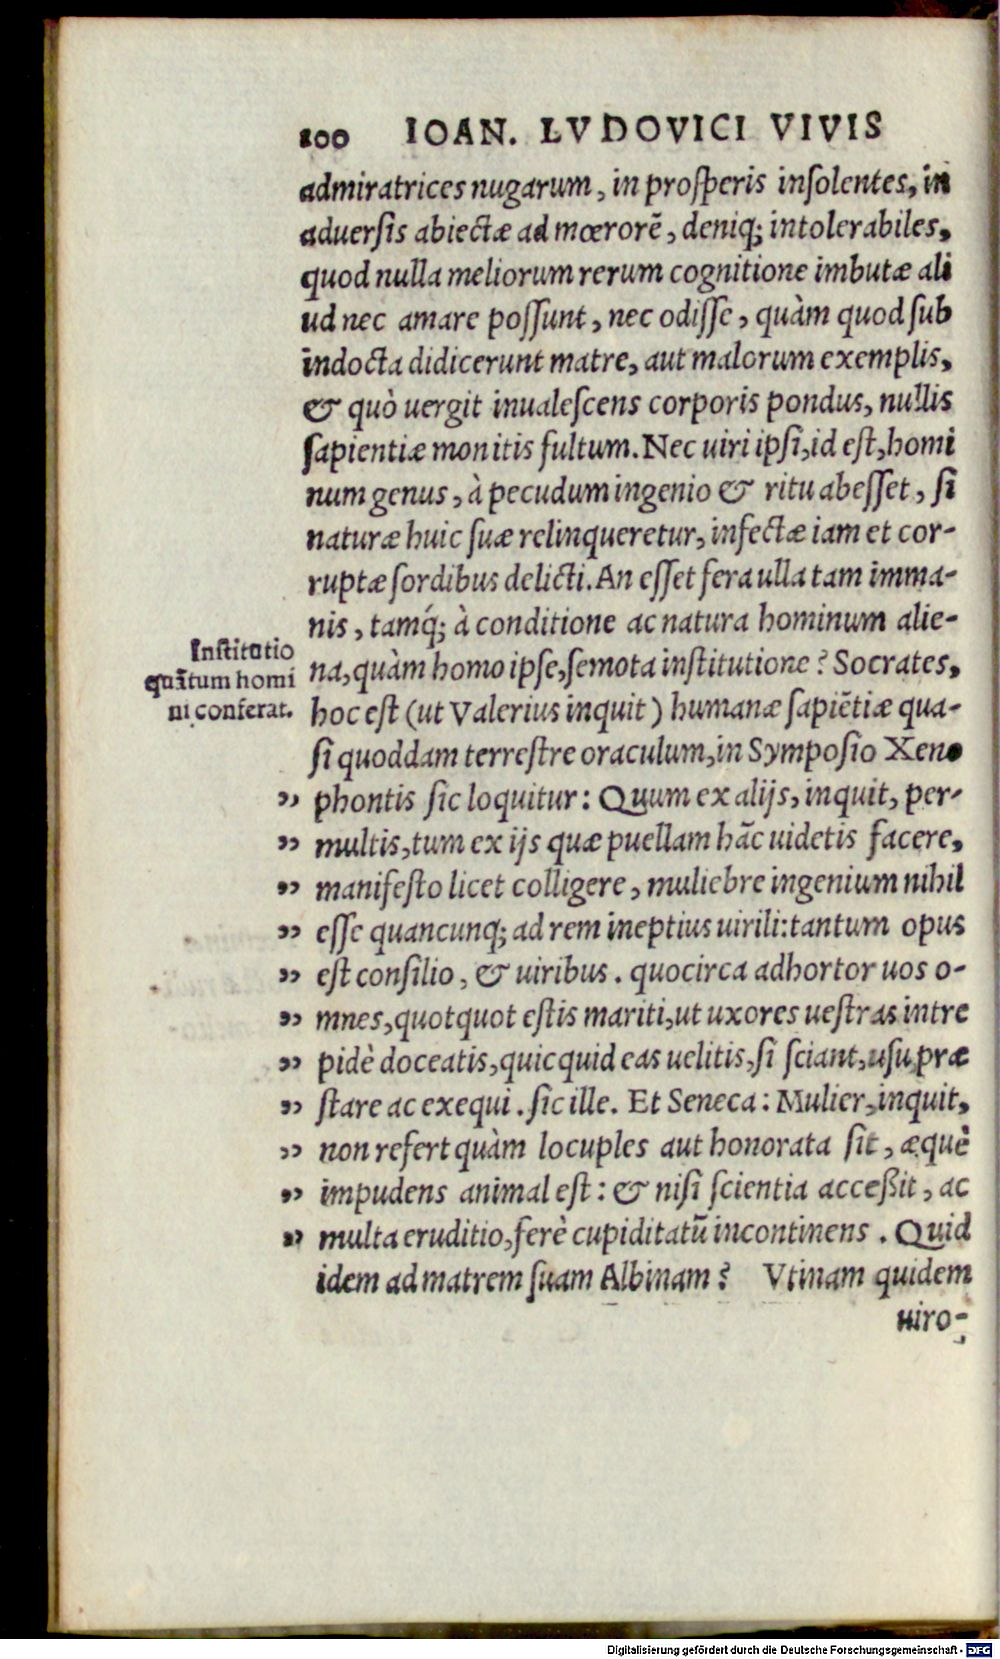 100 IOAN. LVDOVICI VIVIS
admiratrices nugarum, in proſperis inſolentes, in
aduerſis abiectæ ad mœrorē, deniq; intolerabiles,
quod nulla meliorum rerum cognitione imbutæ ali
ud nec amare poſſunt, nec odiſſe, quàm quod ſub
indocta didicerunt matre, aut malorum exemplis,
& quò uergit inualeſcens corporis pondus, nullis
ſapientiæ monitis fultum. Nec uiri ipſi, id eſt, homi
num genus, à pecudum ingenio & ritu abeſſet, ſi
naturæ huic ſuæ relinqueretur, infectæ iam et cor-
ruptæ ſordibus delicti. An eſſet fera ulla tam imma-
nis, tamq́; à conditione ac natura hominum alie-
Inſtitutio
quātum homi
ni conferat.
na, quàm homo ipſe, ſemota inſtitutione? Socrates,
hoc eſt (ut Valerius inquit) humanæ ſapiētiæ qua-
ſi quoddam terreſtre oraculum, in Sympoſio Xeno
„ phontis ſic loquitur: Quum ex alijs, inquit, per-
„ multis, tum ex ijs quæ puellam hāc uidetis facere,
„ manifeſto licet colligere, muliebre ingenium nihil
„ eſſe quancunq; ad rem ineptius uirili: tantum opus
„ eſt conſilio, & uiribus. quocirca adhortor uos o-
„ mnes, quotquot eſtis mariti, ut uxores ueſtras intre
„ pidè doceatis, quicquid eas uelitis, ſi ſciant, uſu præ
„ ſtare ac exequi. ſic ille. Et Seneca: Mulier, inquit,
„ non refert quàm locuples aut honorata ſit, æquè
„ impudens animal eſt: & niſi ſcientia acceßit, ac
„ multa eruditio, ferè cupiditatū incontinens. Quid
idem ad matrem ſuam Albinam? Vtinam quidem
uiro-
Digitalisierung gefördert durch die Deutsche Forschungsgemeinschaft - DFG